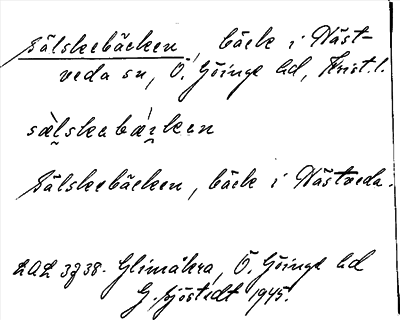 Sälskebäcken, bäck i Häst-
veda sn, Ö. Göinge hd, Krist. l.
sæ̀lskabæ̀kken
Sälskebäcken, bäck i Hästveda.
LAL 3738. Glimåkra, Ö. Göinge hd
G. Sjöstedt 1945.